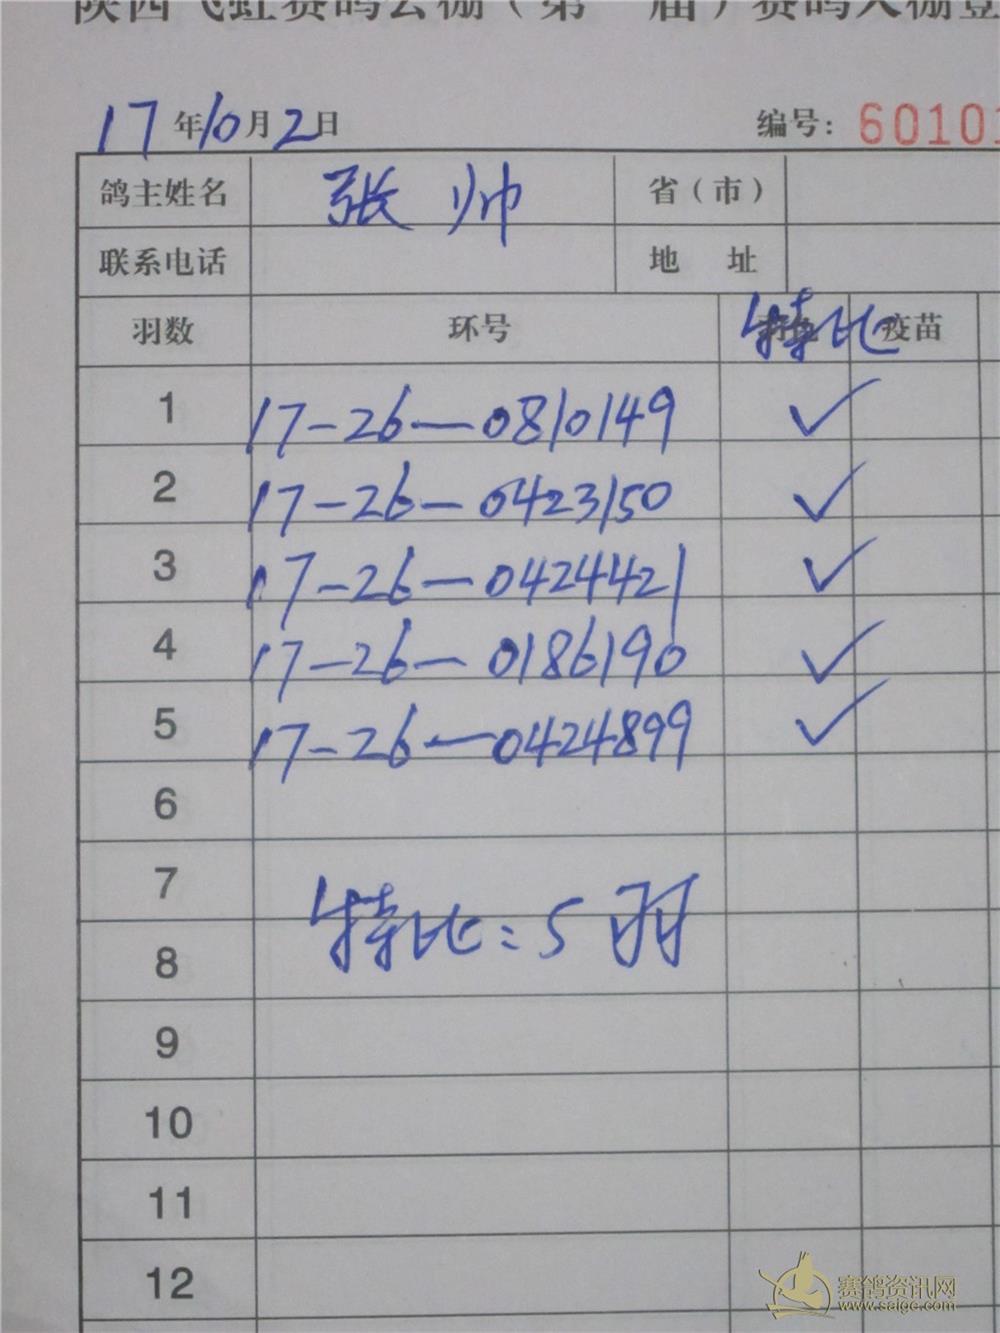 陕西飞虹赛鸽公棚（第 届）赛鸽入棚登
17年10月2日 编号：6010
鸽主姓名 张帅 省（市）
联系电话 地 址
羽数 环号 特比 疫苗
1 17-26-0810149 ✓
2 17-26-0423150 ✓
3 17-26-0424421 ✓
4 17-26-0186190 ✓
5 17-26-0424899 ✓
6
7
特比：5羽
8
9
10
11
12
赛鸽资讯网
www.saige.com